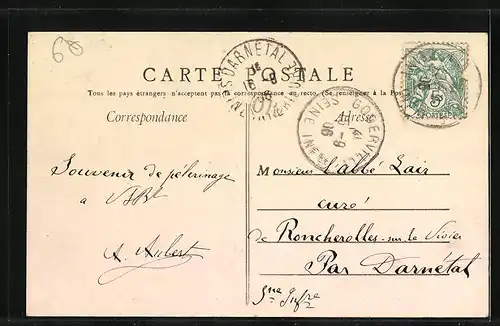 60
CARTE POSTALE
Tous les pays étrangers n'acceptent pas la correspondance au recto. (Se renseigner à la Poste)
Correspondance
Adresse
DARNETAL
GODERVILLE
SEINE INFRE
Souvenir de pèlerinage
à
A. Aubert
Monsieur l'abbé Lair
curé
de Roncherolles-sur-le Vivier
Par Darnétal
Sne Infre